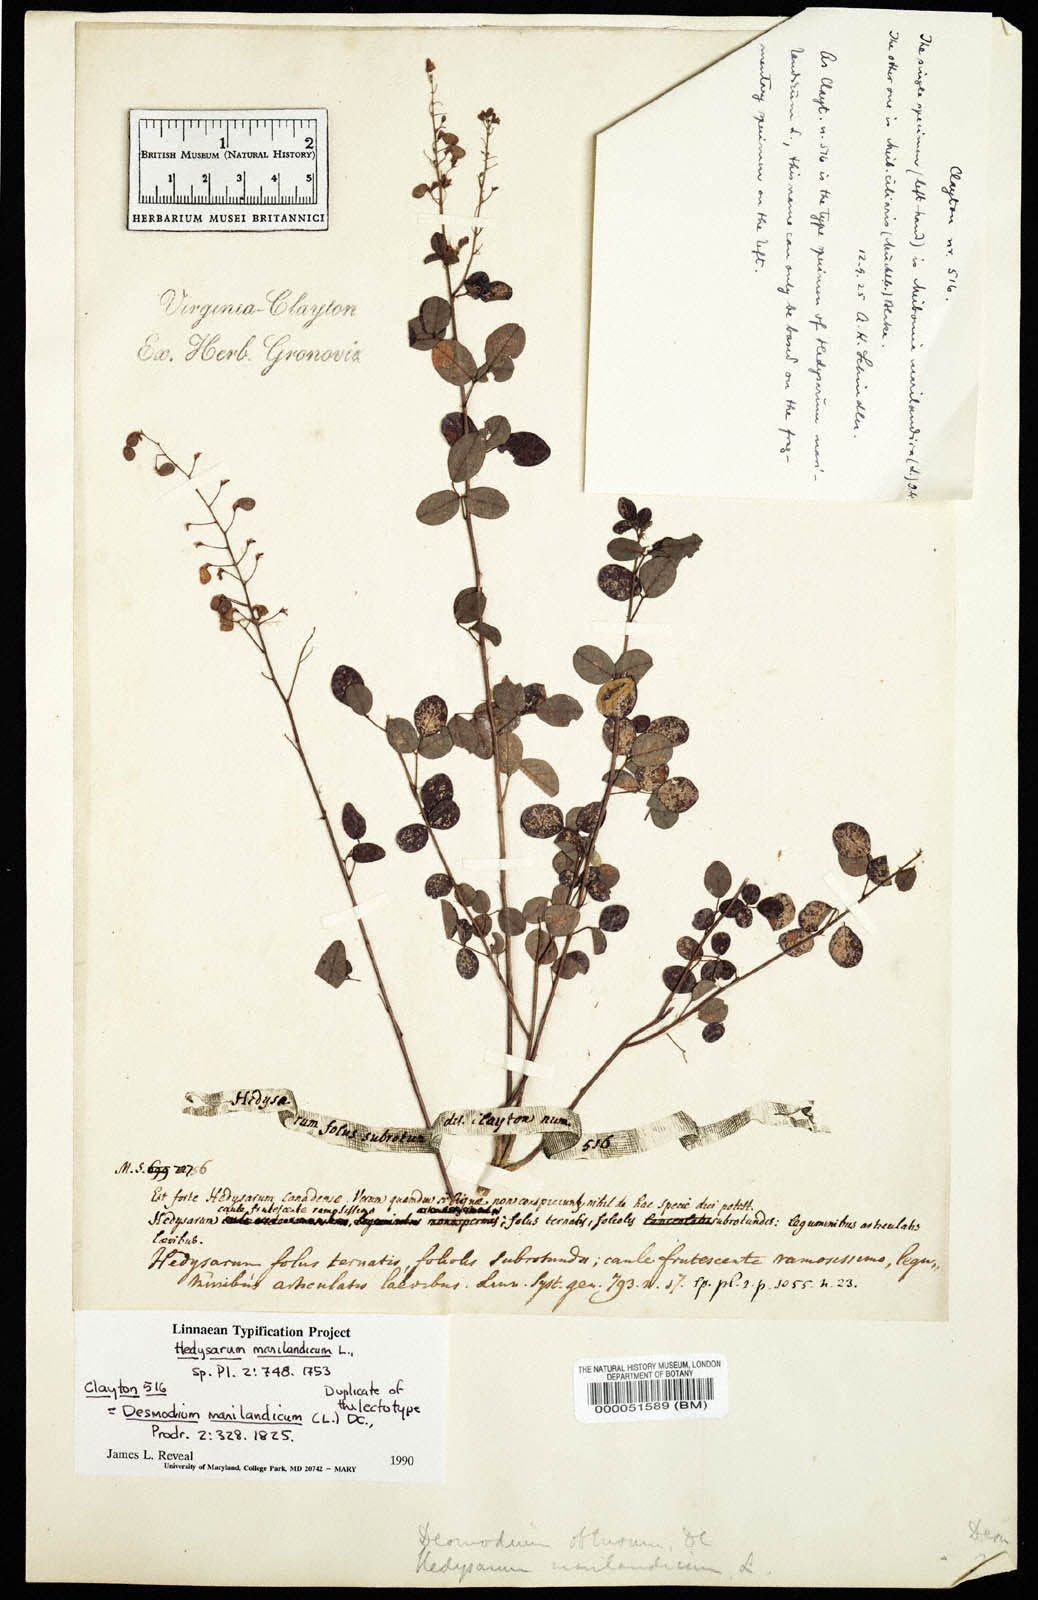 1 2
BRITISH MUSEUM (NATURAL HISTORY)
1 2 3 4 5
HERBARIUM MUSEI BRITANNICI
Virginia-Clayton
Ex. Herb. Gronovii
Clayton nr. 516.
The single specimen (left-hand) is Meibomia marilandica (L.) OK
The other one is Meib. ciliaris (Muhlb.) Blake.
12.9.25 A.K. Schindler.
As Clayt. n. 516 is the type specimen of Hedysarum mari-
landicum L., this name can only be based on the frag-
mentary specimen on the left.
Hedysa
rum foliis subrotun
dis. Clayton num.
516
M.S. 756
Est forte Hedysarum Canadense. Verum quandu siliquæ non conspiciunt, nihil de hac specie dici potest.
caule frutescente ramosissimo
Hedysarum foliis ternatis, foliolis subrotundis: leguminibus articulatis
lævibus.
Hedysarum foliis ternatis, foliolis subrotundis; caule frutescente ramosissimo, legu,,
minibus articulatis laevibus. Linn. Syst. gen. 793. n. 17. Sp. pl. 2. p. 1055. n. 23.
Linnaean Typification Project
Hedysarum marilandicum L.,
Sp. Pl. 2: 748. 1753
Clayton 516 Duplicate of
the lectotype
= Desmodium marilandicum (L.) DC.,
Prodr. 2: 328. 1825.
James L. Reveal 1990
University of Maryland, College Park, MD 20742 – MARY
THE NATURAL HISTORY MUSEUM, LONDON
DEPARTMENT OF BOTANY
000051589 (BM)
Desmodium obtusum, DC
Hedysarum marilandicum, L.
Desm